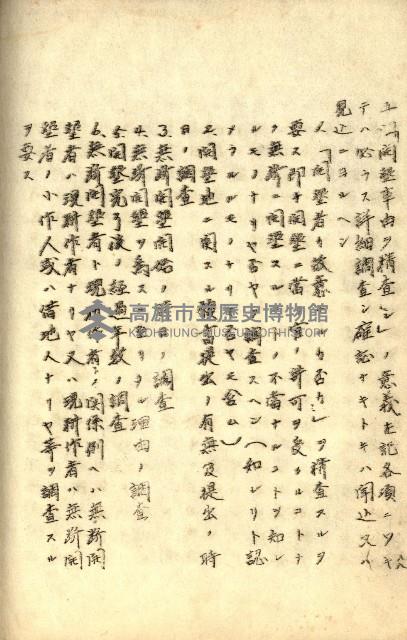 五、「開墾事由ヲ精査シ」ノ意義左記各項ニツキ
テハ必ラス詳細調査シ確認ナキトキハ聞込又ハ
見込ニヨルヘシ
1.「開墾者カ故意カ否カ」ヲ精査スルヲ
要ス即チ開墾ニ當リ許可ヲ受クルコトナ
ク無斷ニ開墾スルノ不當ナルコトヲ知レ
ルモノナリヤ否ヤヲ調査スヘシ(知レリト認
メラルモノナリヤ否ヤモ含ム)
2.開墾地ニ関スル 書提出ノ有無及提出ノ時
日ノ調査
3.無斷開墾開始ノ 調査
4.無斷開墾ヲ為スニ至リタル理由ノ調査
5.開墾完了後ノ經過年數ノ調査
6.無斷開墾者ト現耕作者トノ関係例ヘハ無斷開
墾者ハ現耕作者ナリヤ又ハ現耕作者ハ無斷開
墾者ノ小作人或ハ借地人ナリヤ等ヲ調査スル
ヲ要ス
高雄市立歷史博物館
KAOHSIUNG MUSEUM OF HISTORY